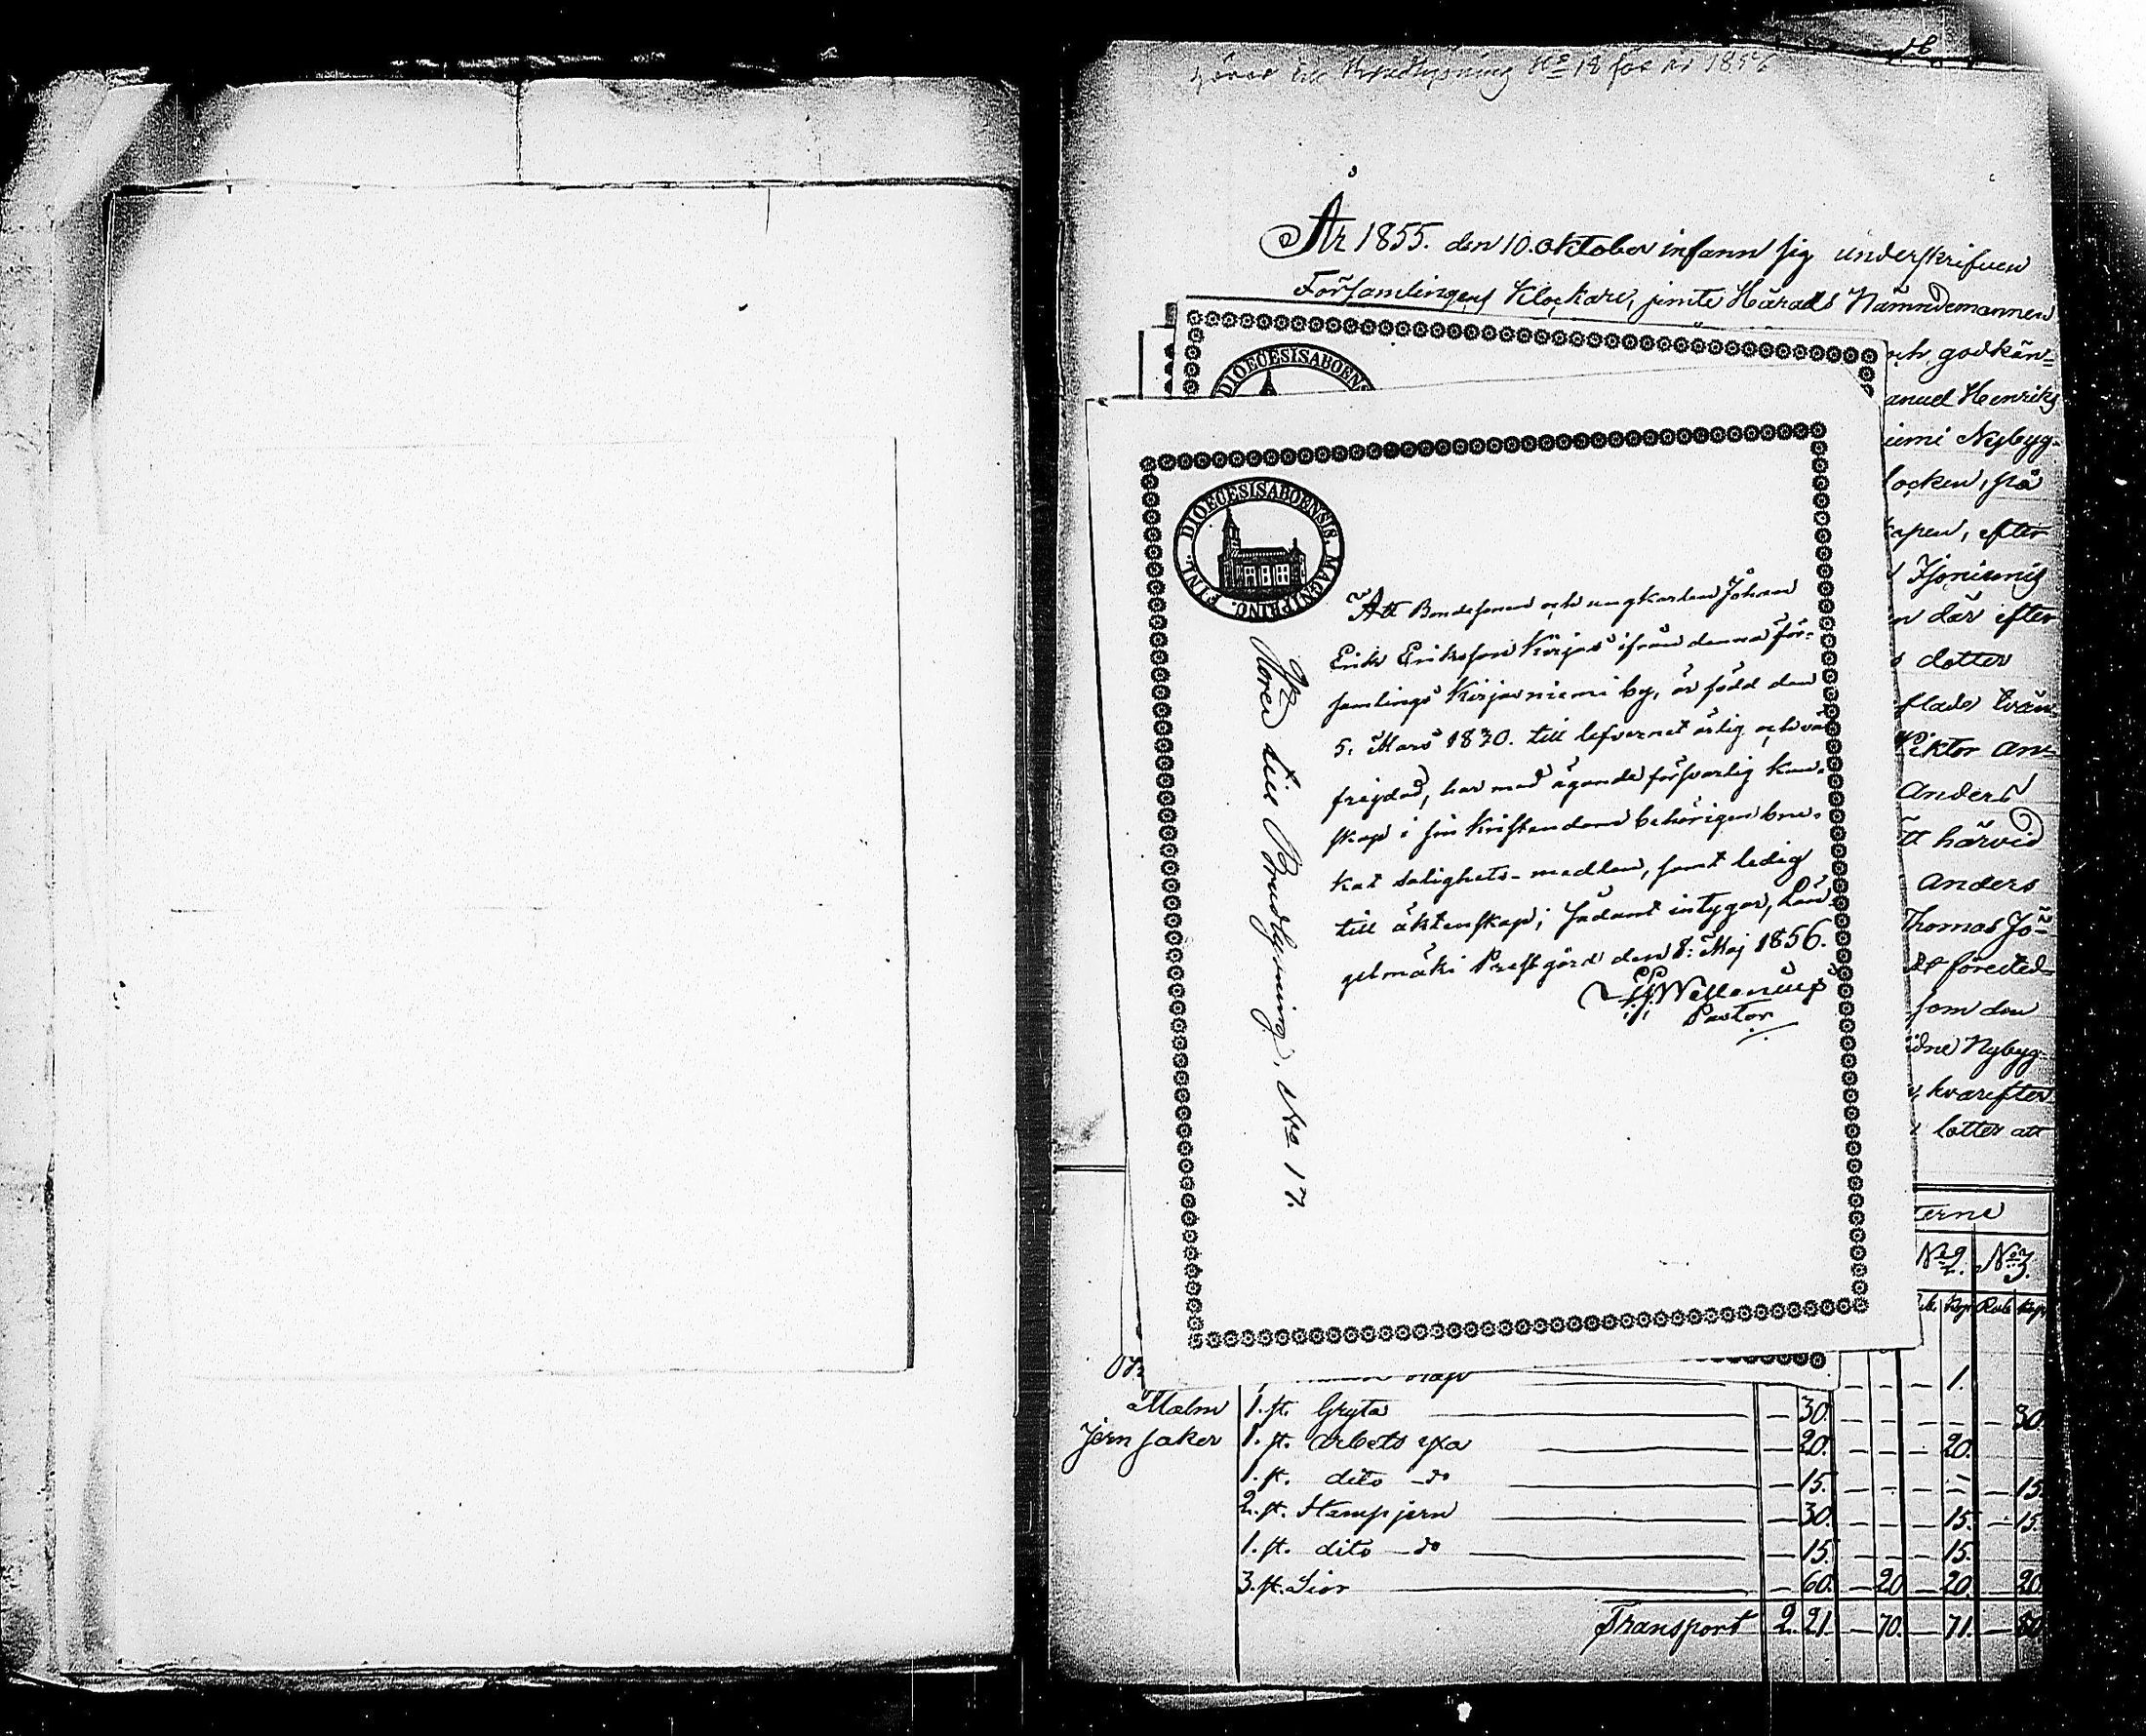 hörer till Brudlysning No 18 för år 1856
År 1855. den 10. oktober infann sig underskrifven
Församlingens Klockare, jemte Härads Nämndemannen
och godkän-
anuel Henriks
iemi Nybyg-
locken, på
kapen, efter
n där efter
s dotter
Viktor An-
Anders
tt härvid
Anders
Thomas Jo-
som den
idne Nybyg-
hvarefter
lotter att
DIOECESISABOENS
DIOECESISABOENSIS. MAGNI PRINC. FINL.
Att Bondesonen och ungkarlen Johan
Erik Eriksson Kirjas ifrån denna för-
samlings Kirjasniemi by, är född den
5. Mars 1830. till lefvernet ärlig och väl
frejdad, har med ägande försvarlig kun-
skap i sin Kristendom behörigen bru-
kat salighets-medlen, samt ledig
till äktenskap; sådant intygar, Län-
gelmäki Prestgård den 8. Maj 1856.
Pastor
Hörer till Brudlysning, No 17.
terne
No 2. No 3.
Kop Rub Kop
1.
Malm 1. st. Gryta — 30. — 30.
Jern saker 1. st. Arbets yxa — 20. — 20.
1. st. dito do — 15. — 15.
2. st. Stamp jern — 30. — 15. — 15.
1. st. dito do — 15. — 15.
3. st. Lior — 60. — 20 — 20. — 20.
Transport 2. 21. — 70. — 71. — 80